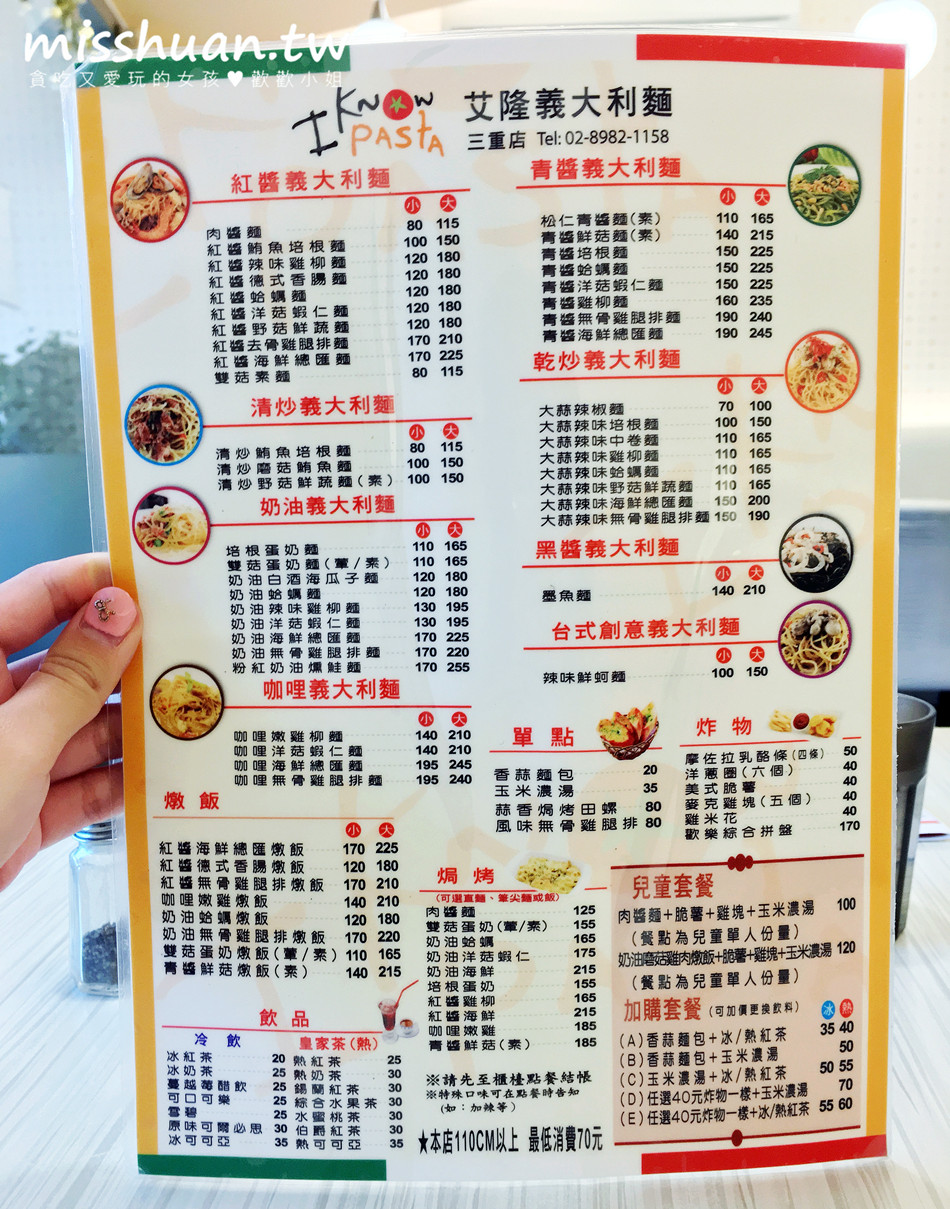 misshuan.tw
貪吃又愛玩的女孩♥歡歡小姐
I KNOW PASTA
艾隆義大利麵
三重店 Tel: 02-8982-1158
紅醬義大利麵
小 大
肉醬麵 80 115
紅醬鮪魚培根麵 100 150
紅醬辣味雞柳麵 120 180
紅醬德式香腸麵 120 180
紅醬蛤蠣麵 120 180
紅醬洋菇蝦仁麵 120 180
紅醬野菇鮮蔬麵 120 180
紅醬去骨雞腿排麵 170 210
紅醬海鮮總匯麵 170 225
雙菇素麵 80 115
清炒義大利麵
小 大
清炒鮪魚培根麵 80 115
清炒磨菇鮪魚麵 100 150
清炒野菇鮮蔬麵(素) 100 150
奶油義大利麵
小 大
培根蛋奶麵 110 165
雙菇蛋奶麵(葷/素) 110 165
奶油白酒海瓜子麵 120 180
奶油蛤蠣麵 120 180
奶油辣味雞柳麵 130 195
奶油洋菇蝦仁麵 130 195
奶油海鮮總匯麵 170 225
奶油無骨雞腿排麵 170 220
粉紅奶油燻鮭麵 170 255
咖哩義大利麵
小 大
咖哩嫩雞柳麵 140 210
咖哩洋菇蝦仁麵 140 210
咖哩海鮮總匯麵 195 245
咖哩無骨雞腿排麵 195 240
燉飯
小 大
紅醬海鮮總匯燉飯 170 225
紅醬德式香腸燉飯 120 180
紅醬無骨雞腿排燉飯 170 210
咖哩嫩雞燉飯 140 210
奶油蛤蠣燉飯 120 180
奶油無骨雞腿排燉飯 170 220
雙菇蛋奶燉飯(葷/素) 110 165
青醬鮮菇燉飯(素) 140 215
飲品
冷飲
冰紅茶 20
冰奶茶 25
蔓越莓醋飲 25
可口可樂 25
雪碧 25
原味可爾必思 30
冰可可亞 35
皇家茶(熱)
熱紅茶 25
熱奶茶 30
錫蘭紅茶 30
綜合水果茶 30
水蜜桃茶 30
伯爵紅茶 30
熱可可亞 35
青醬義大利麵
小 大
松仁青醬麵(素) 110 165
青醬鮮菇麵(素) 140 215
青醬培根麵 150 225
青醬蛤蠣麵 150 225
青醬洋菇蝦仁麵 150 225
青醬雞柳麵 160 235
青醬無骨雞腿排麵 190 240
青醬海鮮總匯麵 190 245
乾炒義大利麵
小 大
大蒜辣椒麵 70 100
大蒜辣味培根麵 100 150
大蒜辣味中卷麵 110 165
大蒜辣味雞柳麵 110 165
大蒜辣味蛤蠣麵 110 165
大蒜辣味野菇鮮蔬麵 110 165
大蒜辣味海鮮總匯麵 150 200
大蒜辣味無骨雞腿排麵 150 190
黑醬義大利麵
小 大
墨魚麵 140 210
台式創意義大利麵
小 大
辣味鮮蚵麵 100 150
單點
香蒜麵包 20
玉米濃湯 35
蒜香焗烤田螺 80
風味無骨雞腿排 80
炸物
摩佐拉乳酪條(四條) 50
洋蔥圈(六個) 40
美式脆薯 40
麥克雞塊(五個) 40
雞米花 40
歡樂綜合拼盤 170
焗烤
(可選直麵、筆尖麵或飯)
肉醬麵 125
雙菇蛋奶(葷/素) 155
奶油蛤蠣 165
奶油洋菇蝦仁 175
奶油海鮮 215
培根蛋奶 155
紅醬雞柳 165
紅醬海鮮 215
咖哩嫩雞 185
青醬鮮菇(素) 185
※請先至櫃檯點餐結帳
※特殊口味可在點餐時告知
(如：加辣等)
★本店110CM以上 最低消費70元
兒童套餐
肉醬麵+脆薯+雞塊+玉米濃湯 100
(餐點為兒童單人份量)
奶油磨菇雞肉燉飯+脆薯+雞塊+玉米濃湯 120
(餐點為兒童單人份量)
加購套餐(可加價更換飲料) 冰 熱
(A)香蒜麵包+冰/熱紅茶 35 40
(B)香蒜麵包+玉米濃湯 50
(C)玉米濃湯+冰/熱紅茶 50 55
(D)任選40元炸物一樣+玉米濃湯 70
(E)任選40元炸物一樣+冰/熱紅茶 55 60